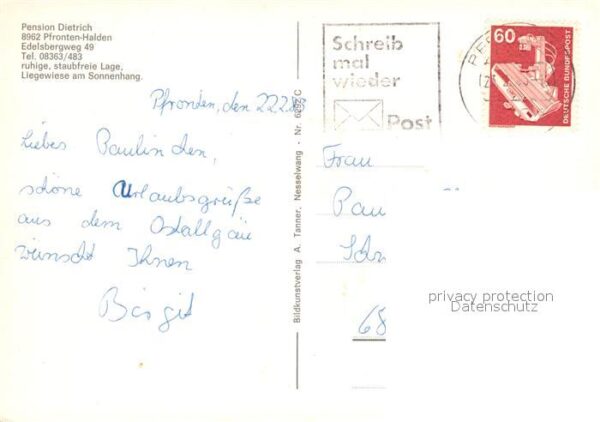 Pension Dietrich
8962 Pfronten-Halden
Edelsbergweg 49
Tel. 08363/483
ruhige, staubfreie Lage,
Liegewiese am Sonnenhang.
Pfronten, den 22.2.85
Liebes Paulinchen,
schöne Urlaubsgrüße
aus dem Ostallgäu
wünscht Ihnen
Birgit
Bildkunstverlag A. Tanner, Nesselwang - Nr.
Schreib
mal
wieder
Post
60
DEUTSCHE BUNDESPOST
Frau
Pau
68
privacy protection
Datenschutz